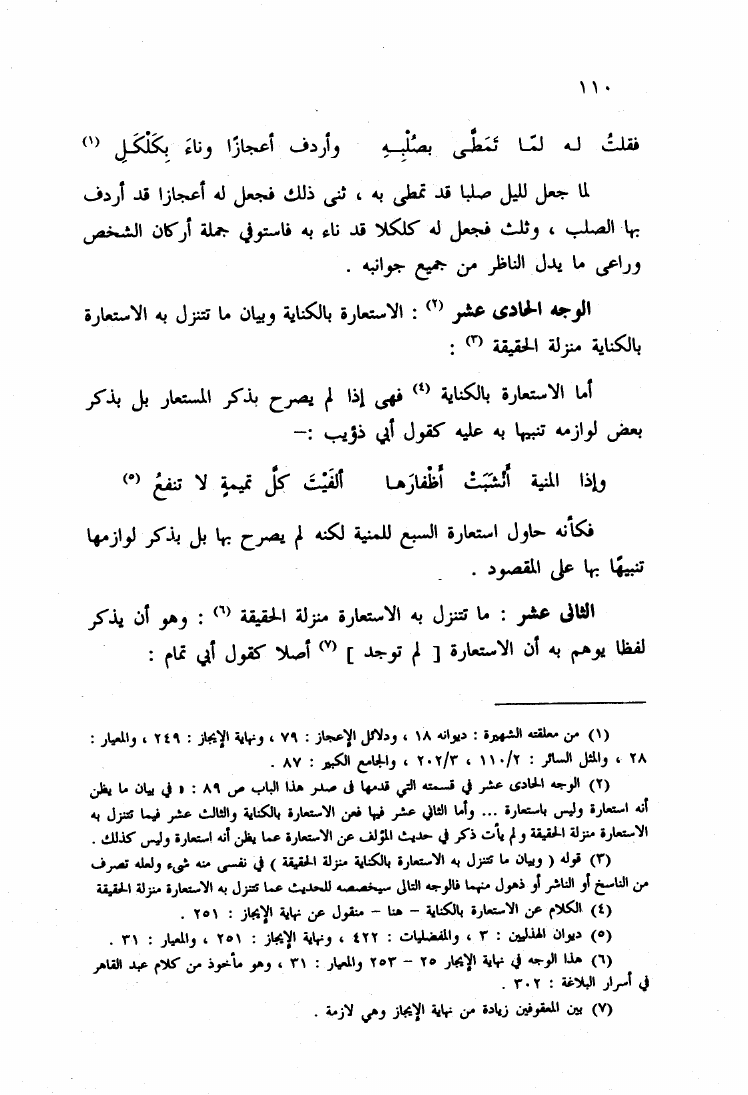 ١١٠
فقلتُ له لمّا تَمَطَّى بصُلْبِهِ وأردف أعجازًا وناءَ بِكَلْكَلِ (١)
لما جعل لليل صلبا قد تمطى به ، ثنى ذلك فجعل له أعجازا قد أردف
بها الصلب ، وثلث فجعل له كلكلا قد ناء به فاستوفي جملة أركان الشخص
وراعى ما يدل الناظر من جميع جوانبه .
الوجه الحادى عشر (٢) : الاستعارة بالكناية وبيان ما تتنزل به الاستعارة
بالكناية منزلة الحقيقة (٣) :
أما الاستعارة بالكناية (٤) فهى إذا لم يصرح بذكر المستعار بل بذكر
بعض لوازمه تنبيها به عليه كقول أبي ذؤيب :—
وإذا المنية أَنْشَبَتْ أَظْفارَها ألفَيْتَ كلَّ تميمةٍ لا تنفعُ (٥)
فكأنه حاول استعارة السبع للمنية لكنه لم يصرح بها بل بذكر لوازمها
تنبيهًا بها على المقصود .
الثانى عشر : ما تتنزل به الاستعارة منزلة الحقيقة (٦) : وهو أن يذكر
لفظا يوهم به أن الاستعارة [ لم توجد ] (٧) أصلا كقول أبي تمام :
(١) من معلقته الشهيرة : ديوانه ١٨ ، ودلائل الإعجاز : ٧٩ ، ونهاية الإيجاز : ٢٤٩ ، والمعيار :
٢٨ ، والمثل السائر : ١١٠/٢ ، ٢٠٢/٣ ، والجامع الكبير : ٨٧ .
(٢) الوجه الحادى عشر في قسمته التي قدمها فى صدر هذا الباب ص ٨٩ : « في بيان ما يظن
أنه استعارة وليس باستعارة ... وأما الثاني عشر فيها فعن الاستعارة بالكناية والثالث عشر فيما تتنزل به
الاستعارة منزلة الحقيقة ولم يأت ذكر في حديث المؤلف عن الاستعارة عما يظن أنه استعارة وليس كذلك .
(٣) قوله ( وبيان ما تتنزل به الاستعارة بالكناية منزلة الحقيقة ) في نفسى منه شىء ولعله تصرف
من الناسخ أو الناشر أو ذهول منهما فالوجه التالى سيخصصه للحديث عما تتنزل به الاستعارة منزلة الحقيقة
(٤) الكلام عن الاستعارة بالكناية – هنا – منقول عن نهاية الإيجاز : ٢٥١ .
(٥) ديوان الهذليين : ٣ ، والمفضليات : ٤٢٢ ، ونهاية الإيجاز : ٢٥١ ، والمعيار : ٣١ .
(٦) هذا الوجه في نهاية الإيجار ٢٥ – ٢٥٣ والمعيار : ٣١ ، وهو مأخوذ من كلام عبد القاهر
في أسرار البلاغة : ٣٠٢ .
(٧) بين المعقوفين زيادة من نهاية الإيجاز وهي لازمة .